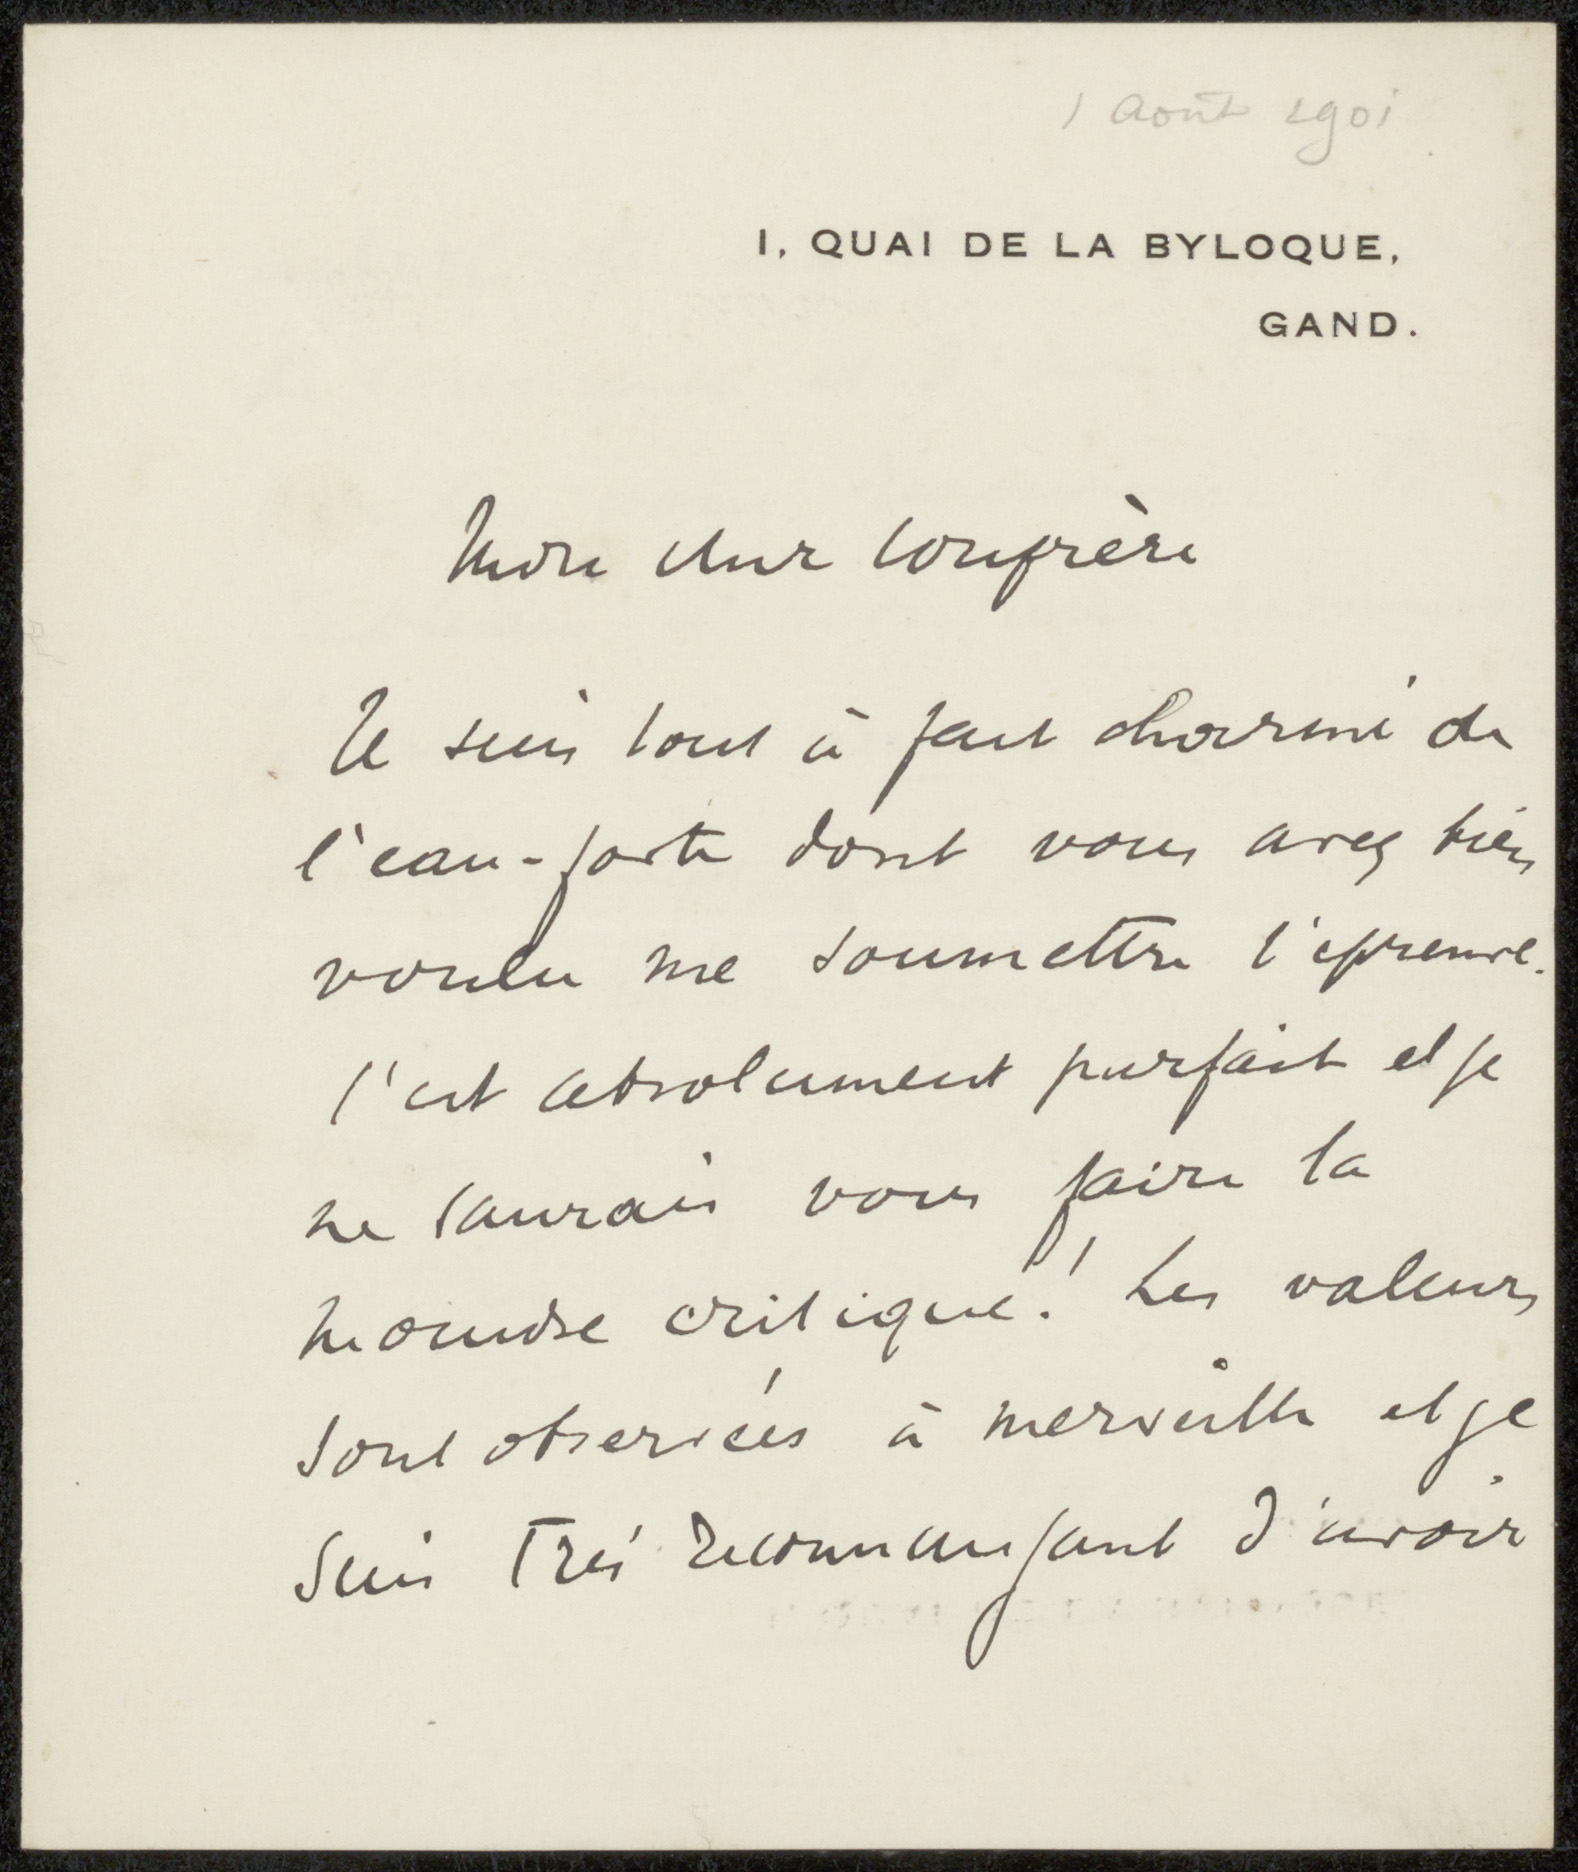 1 Août 1901
1, QUAI DE LA BYLOQUE,
GAND.
Mon cher Confrère
Je suis tout à fait charmé de
l'eau-forte dont vous avez bien
voulu me soumettre l'épreuve.
C'est absolument parfait et je
ne saurais vous faire la
moindre critique! Les valeurs
sont observées à merveille et je
suis très reconnaissant d'avoir